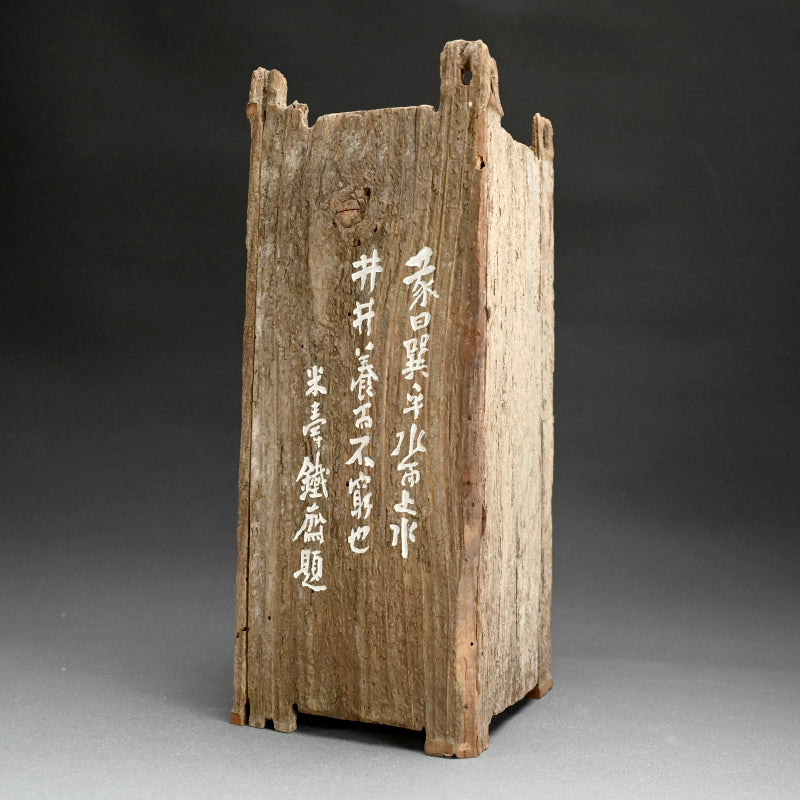 彖曰巽乎水而上水
井井養而不窮也
米壽鐵齋題